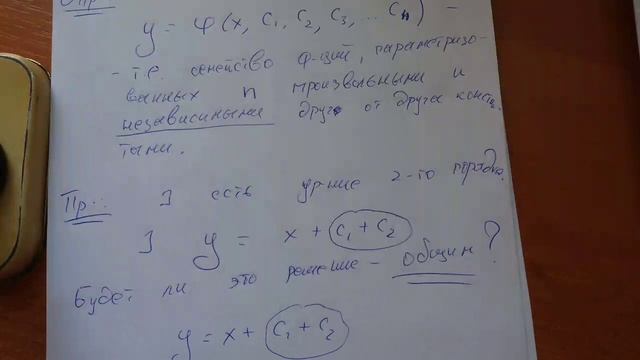 Опр
y = φ(x, C₁, C₂, C₃, ... Cₙ) –
- т.е. семейство ф-ций, параметризо-
ванных n произвольными и
независимыми друг от друга конст.
тыми.
Пр.: ] есть ур-ние 2-го порядка.
] y = x + C₁ + C₂
Будет ли это решение – общим?
y = x + C₁ + C₂